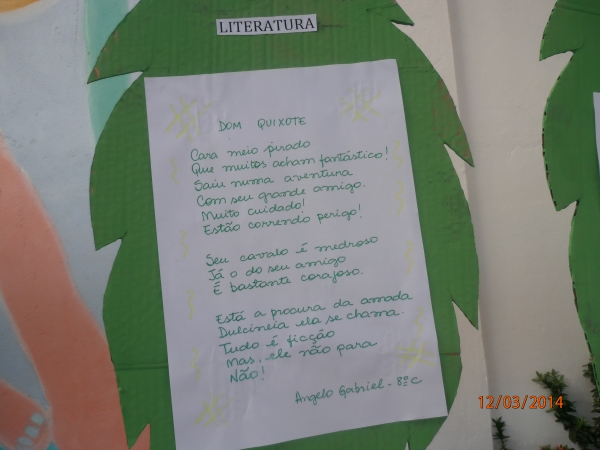 LITERATURA
DOM QUIXOTE
Cara meio pirado
Que muitos acham fantástico!
Saiu numa aventura
Com seu grande amigo.
Muito cuidado!
Estão correndo perigo!
Seu cavalo é medroso
Já o do seu amigo
É bastante corajoso.
Está a procura da amada
Dulcineia ela se chama.
Tudo é ficção
Mas, ele não para
Não!
Angelo Gabriel - 8º C
12/03/2014